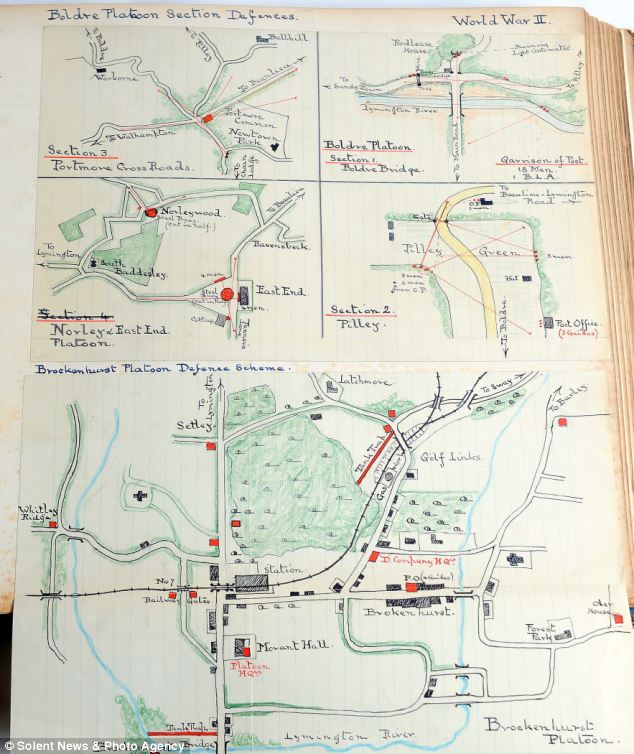 Boldre Platoon Section Defences.
World War II.
Bullhill
To Pilley
Warborne
To Beaulieu
Portmore Common
To Walhampton
Newtown Park
Section 3.
Portmore Cross Roads.
Rodlease House
Browning Light Automatic
To Pilley
To Sandy Down
Tree
Lymington River
To Main Road
Boldre Platoon
Section 1.
Boldre Bridge.
Garrison of Post.
18 Men.
1 B.L.A.
To Beaulieu
Norleywood.
Steel Buoy
(cut in half.)
To Lymington
Ravensbeck
South Baddesley
4 men
Steel Buoy
(cut in half)
East End.
Cottage
4 men
Section 4
Norley & East End
Platoon.
To Beaulieu - Lymington
Road
O.P.
2 men
Gate
Pilley Green
3 men
8 men
+ 2 men
from O.P.
Hut
Section 2.
Pilley.
To Boldre
Post Office.
(3 Guides)
Brockenhurst Platoon Defence Scheme.
Latchmore
To Sway
To Burley
To Lymington
Setley
Tank Trap
Golf Links.
Gas Works
Whitley Ridge
D. Company HQrs
Station
P.O (2 Guides)
No 7
Railway Gates
Brokenhurst.
Forest Park
Morant Hall.
Platoon HQrs
Tank Trap
Bridge
Lymington River
Brockenhurst
Platoon.
© Solent News & Photo Agency